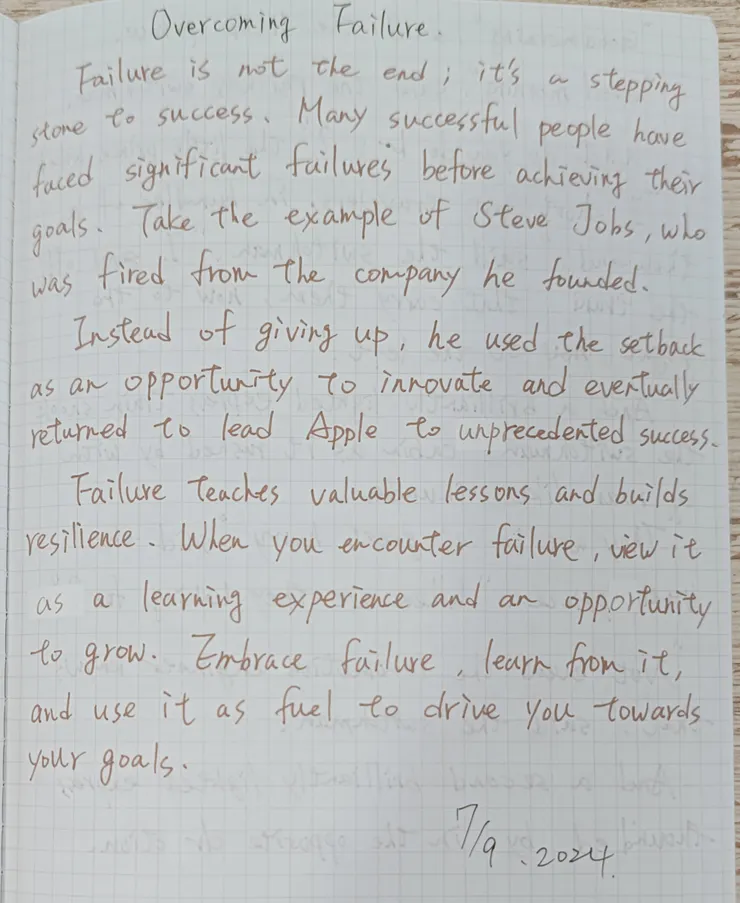 Overcoming Failure.
Failure is not the end; it's a stepping
stone to success. Many successful people have
faced significant failures before achieving their
goals. Take the example of Steve Jobs, who
was fired from the company he founded.
Instead of giving up, he used the setback
as an opportunity to innovate and eventually
returned to lead Apple to unprecedented success.
Failure teaches valuable lessons and builds
resilience. When you encounter failure, view it
as a learning experience and an opportunity
to grow. Embrace failure, learn from it,
and use it as fuel to drive you towards
your goals.
7/9.2024.